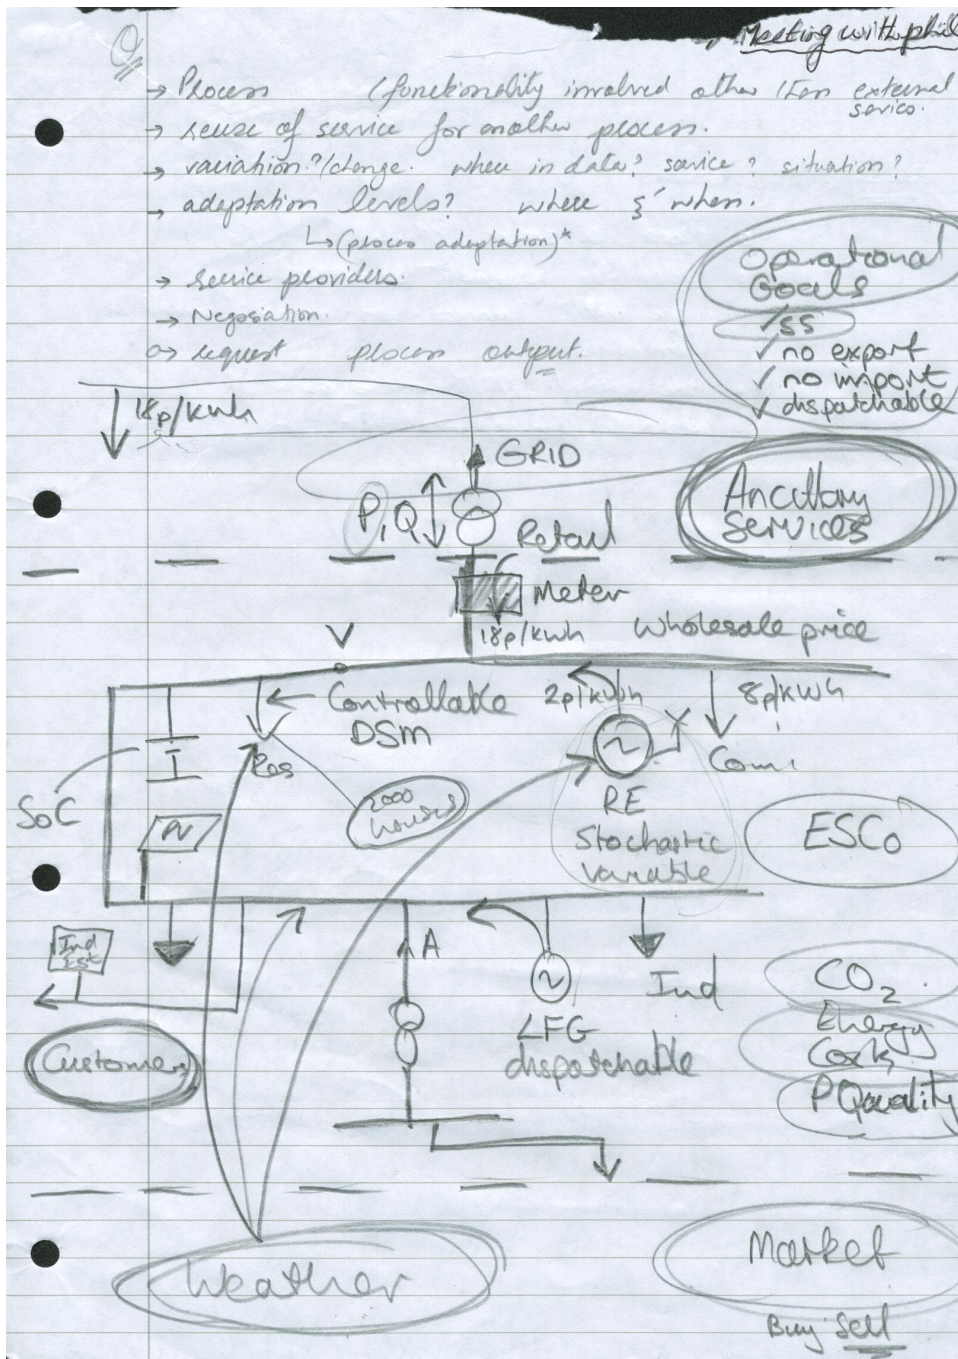 Meeting with phil
Q
→ Process (functionality involved other then external service.
→ reuse of service for another process.
→ variation?/change. where in data? service? situation?
→ adaptation levels? where & when.
↳ (process adaptation)*
→ service providers.
→ Negosiation.
→ request process output.
Operational
Goals
✓ SS
✓ no export
✓ no import
✓ dispatchable
18p/kwh
GRID
P, Q
Ancillary
Services
Retail
Meter
18p/kwh
wholesale price
V
Controllable
DSM
2p/kwh
8p/kwh
Res
Comi
SoC
2000
houses
PV
RE
Stochastic
variable
ESCo
Ind
Est
A
Ind
CO2
LFG
dispatchable
Energy
Costs
PQuality
Customers
Weather
Market
Buy Sell